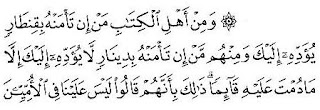 ۞ وَمِنْ أَهْلِ الْكِتَابِ مَنْ إِن تَأْمَنْهُ بِقِنطَارٍ
يُؤَدِّهِ إِلَيْكَ وَمِنْهُم مَّنْ إِن تَأْمَنْهُ بِدِينَارٍ لَّا يُؤَدِّهِ إِلَيْكَ إِلَّا
مَا دُمْتَ عَلَيْهِ قَائِمًا ۗ ذَٰلِكَ بِأَنَّهُمْ قَالُوا لَيْسَ عَلَيْنَا فِي الْأُمِّيِّينَ